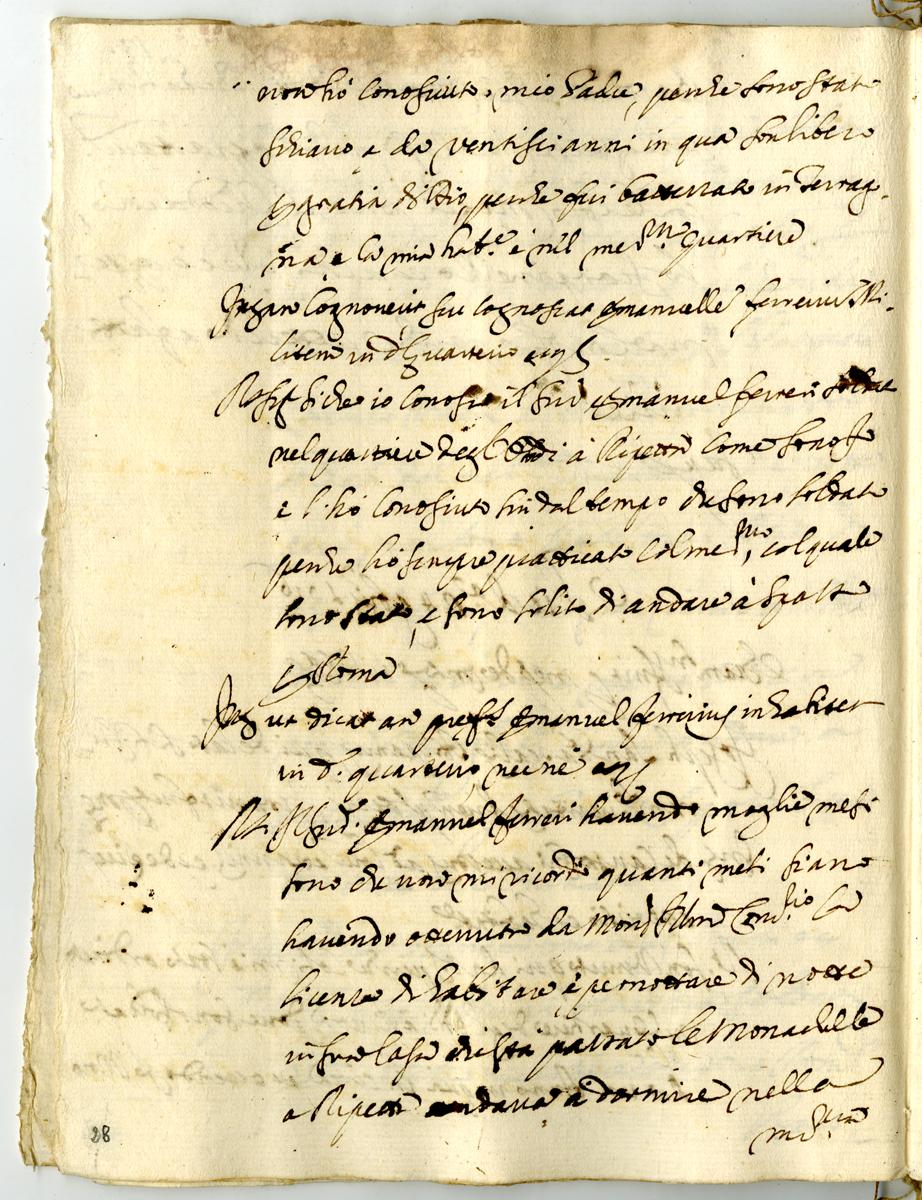 non hò conosciuto mio Padre, perche sono stato
schiavo e da ventisei anni in quà son libero
p gratia di Dio, perche fui battezzato in Terrago-
na e la mia habne è nel medmo quartiere
Interr an cognoverit, sive cognoscat Emanuelle Ferrerius Mi-
litem in do Quarterio
Respt Si che io conosco il sud Emanuel Ferreri soldato
nel quartiere degl à Ripetta come sono Io
e l'hò conosciuto sin dal tempo che sono soldato
perche hò sempre pratticato col medmo, col quale
sono stato, e sono solito di andare à spasso
p Roma
Intus ut dicat an prefs Emanuel Ferrerius inhabitet
in do quarterio, nec ne
Rt Il sud. Emanuel Ferreri havendo moglie mesi
sono che non mi ricordo quanti mesi siano
havendo ottenuto da Monsr Illmo la
licenza di habitare e pernottare di notte
in sua casa che stà passato le Monachelle
a Ripetta andava à dormire nella
medma
28